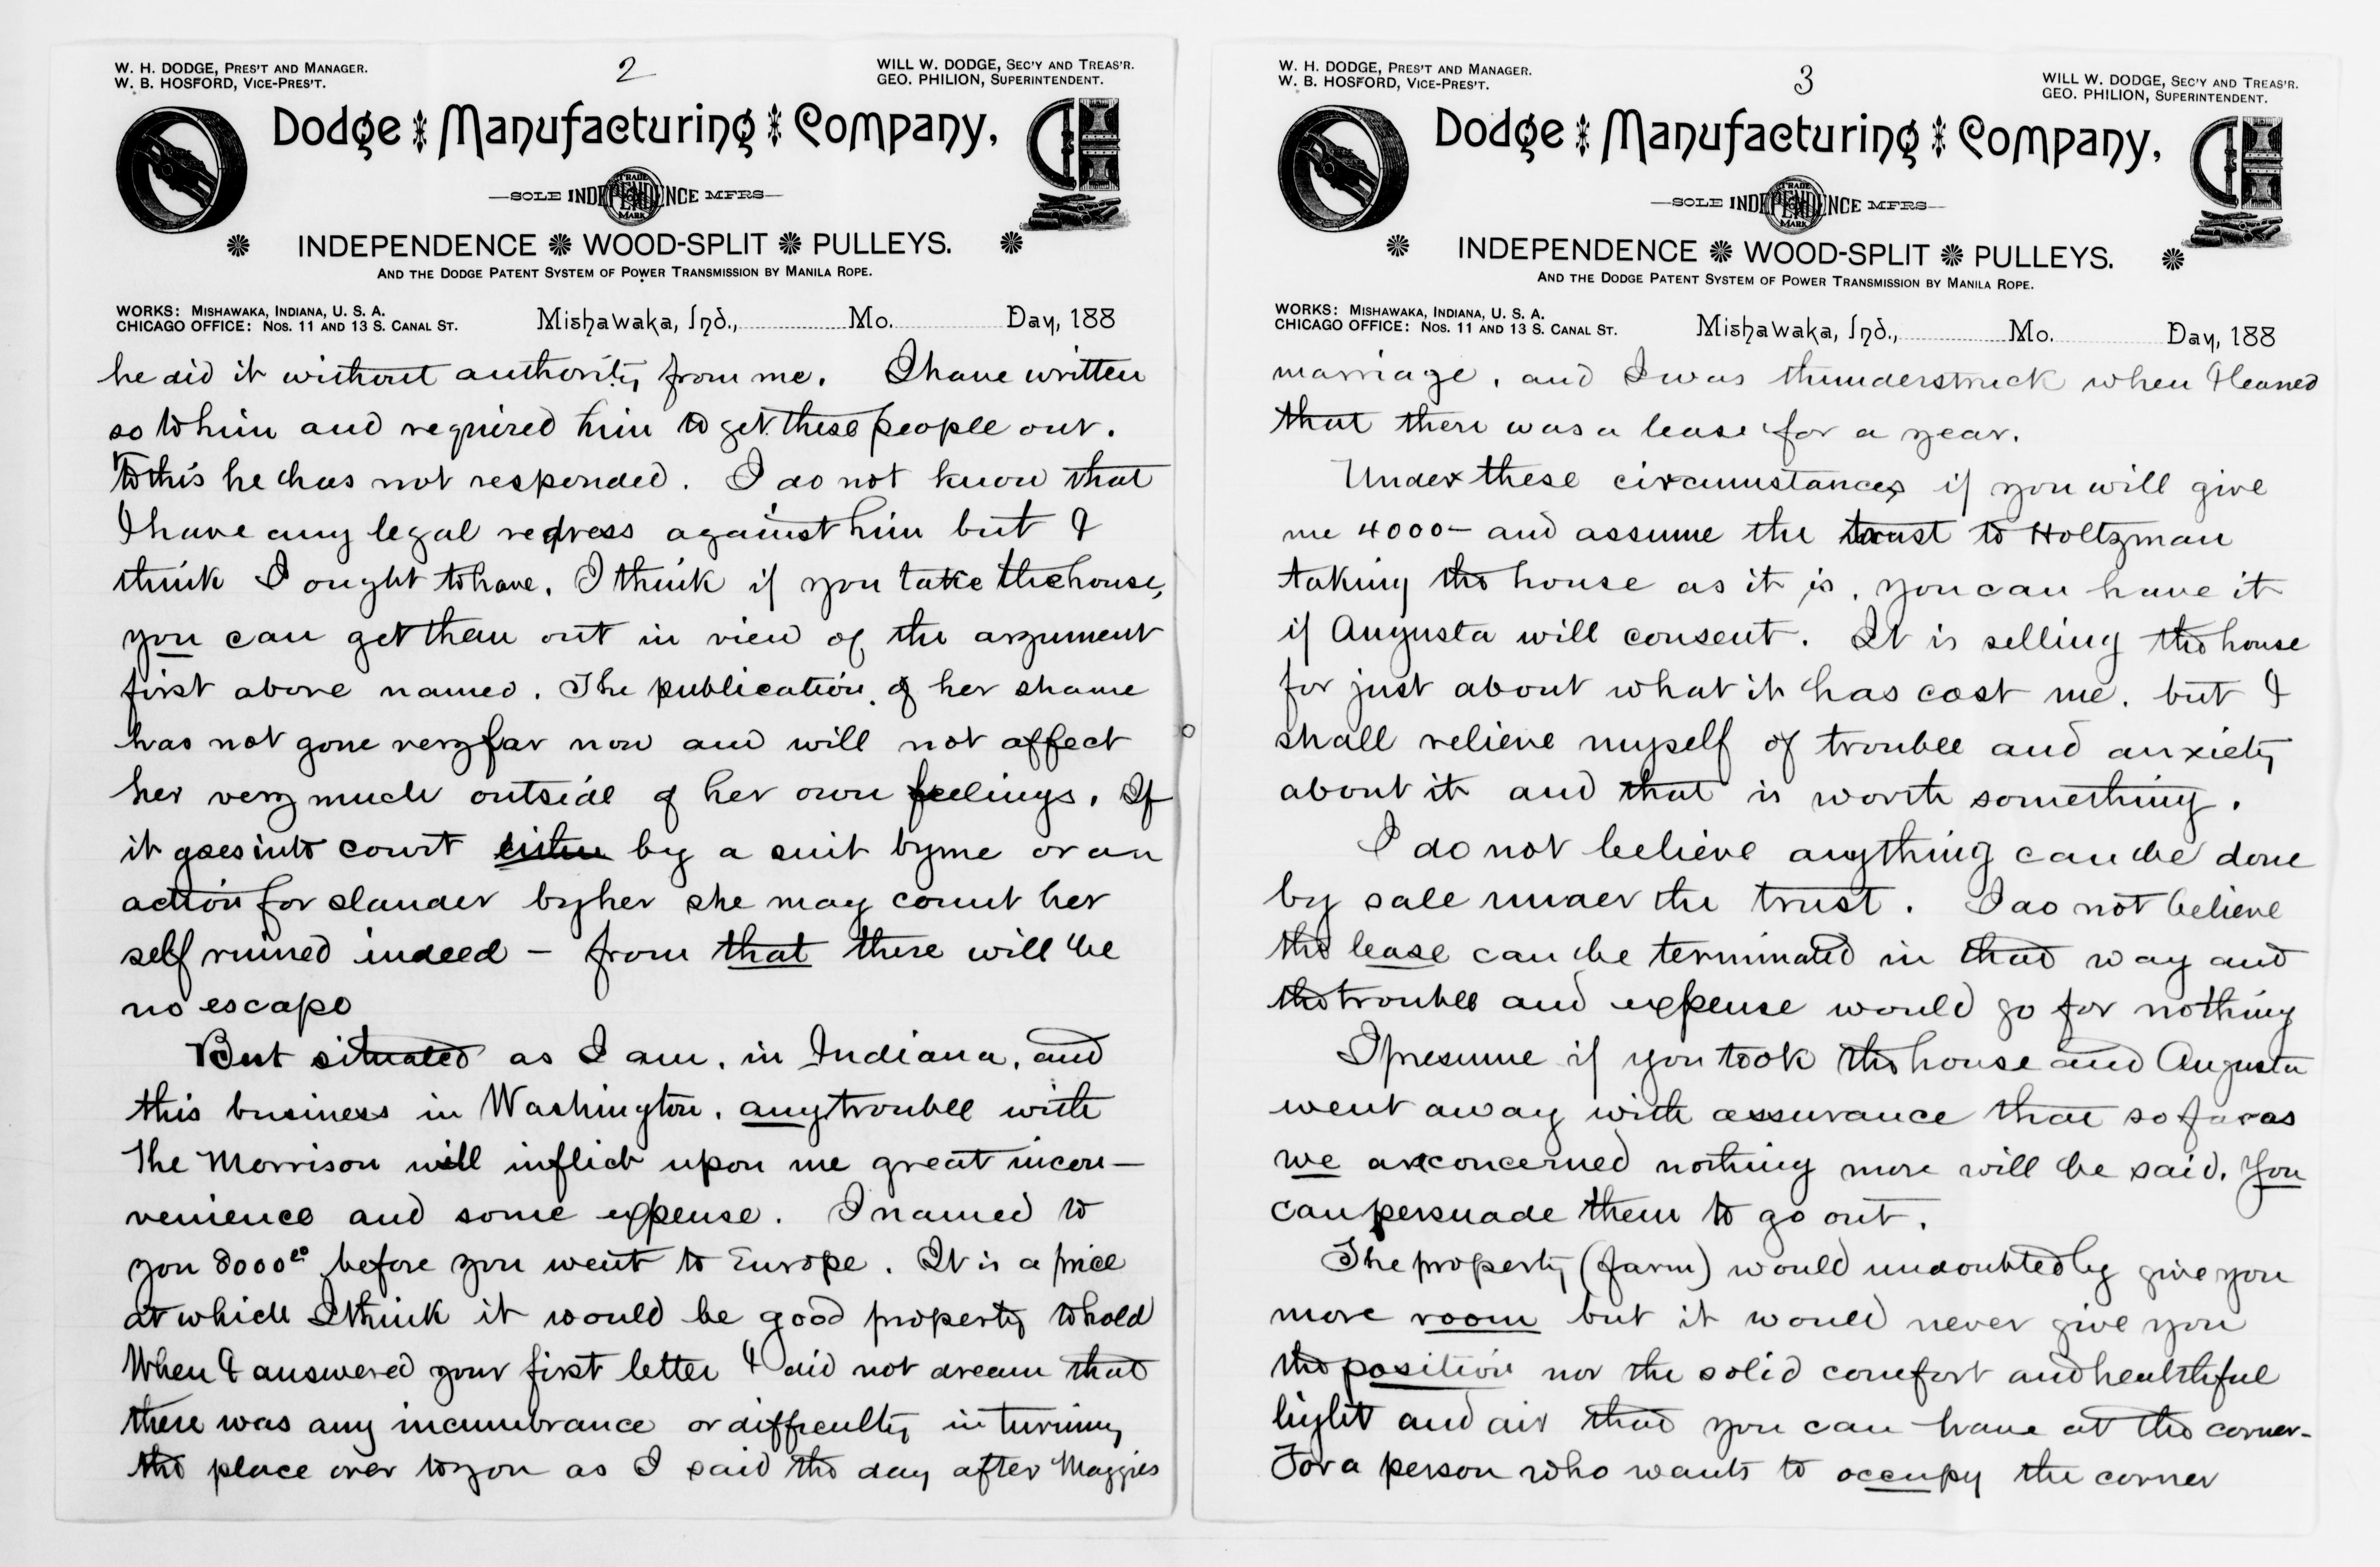 W. H. DODGE, PRES'T AND MANAGER.
W. B. HOSFORD, VICE-PRES'T.
2
WILL W. DODGE, SEC'Y AND TREAS'R.
GEO. PHILION, SUPERINTENDENT.
Dodge Manufacturing Company,
SOLE INDEPENDENCE MFRS
TRADE
MARK
INDEPENDENCE WOOD-SPLIT PULLEYS.
AND THE DODGE PATENT SYSTEM OF POWER TRANSMISSION BY MANILA ROPE.
WORKS: MISHAWAKA, INDIANA, U. S. A.
CHICAGO OFFICE: NOS. 11 AND 13 S. CANAL ST.
Mishawaka, Ind., Mo. Day, 188
he did it without authority from me. I have written
so to him and required him to get these people out.
To this he has not responded. I do not know that
I have any legal redress against him but I
think I ought to have. I think if you take the house,
you can get them out in view of the argument
first above named. The publication of her shame
has not gone very far now and will not affect
her very much outside of her own feelings. If
it goes into court either by a suit by me or an
action for slander by her she may count her
self ruined indeed – from that there will be
no escape
But situated as I am, in Indiana, and
this business in Washington, any trouble with
the Morrison will inflict upon me great incon-
venience and some expense. I named to
you 8000 00 before you went to Europe. It is a price
at which I think it would be good property to hold
When I answered your first letter I did not dream that
there was any incumbrance or difficulty in turning
the place over to you as I said the day after Maggies
W. H. DODGE, PRES'T AND MANAGER.
W. B. HOSFORD, VICE-PRES'T.
3
WILL W. DODGE, SEC'Y AND TREAS'R.
GEO. PHILION, SUPERINTENDENT.
Dodge Manufacturing Company,
SOLE INDEPENDENCE MFRS
TRADE
MARK
INDEPENDENCE WOOD-SPLIT PULLEYS.
AND THE DODGE PATENT SYSTEM OF POWER TRANSMISSION BY MANILA ROPE.
WORKS: MISHAWAKA, INDIANA, U. S. A.
CHICAGO OFFICE: NOS. 11 AND 13 S. CANAL ST.
Mishawaka, Ind., Mo. Day, 188
marriage, and I was thunderstruck when I learned
that there was a lease for a year.
Under these circumstances if you will give
me 4000– and assume the trust to Holtzman
taking the house as it is, you can have it
if Augusta will consent. It is selling the house
for just about what it has cost me. but I
shall relieve myself of trouble and anxiety
about it and that is worth something.
I do not believe anything can be done
by sale under the trust. I do not believe
the lease can be terminated in that way and
the trouble and expense would go for nothing
I presume if you took the house and Augusta
went away with assurance that so far as
we are concerned nothing more will be said. You
can persuade them to go out.
The property (farm) would undoubtedly give you
more room but it would never give you
the position nor the solid comfort and healthful
light and air that you can have at the corner-
For a person who wants to occupy the corner